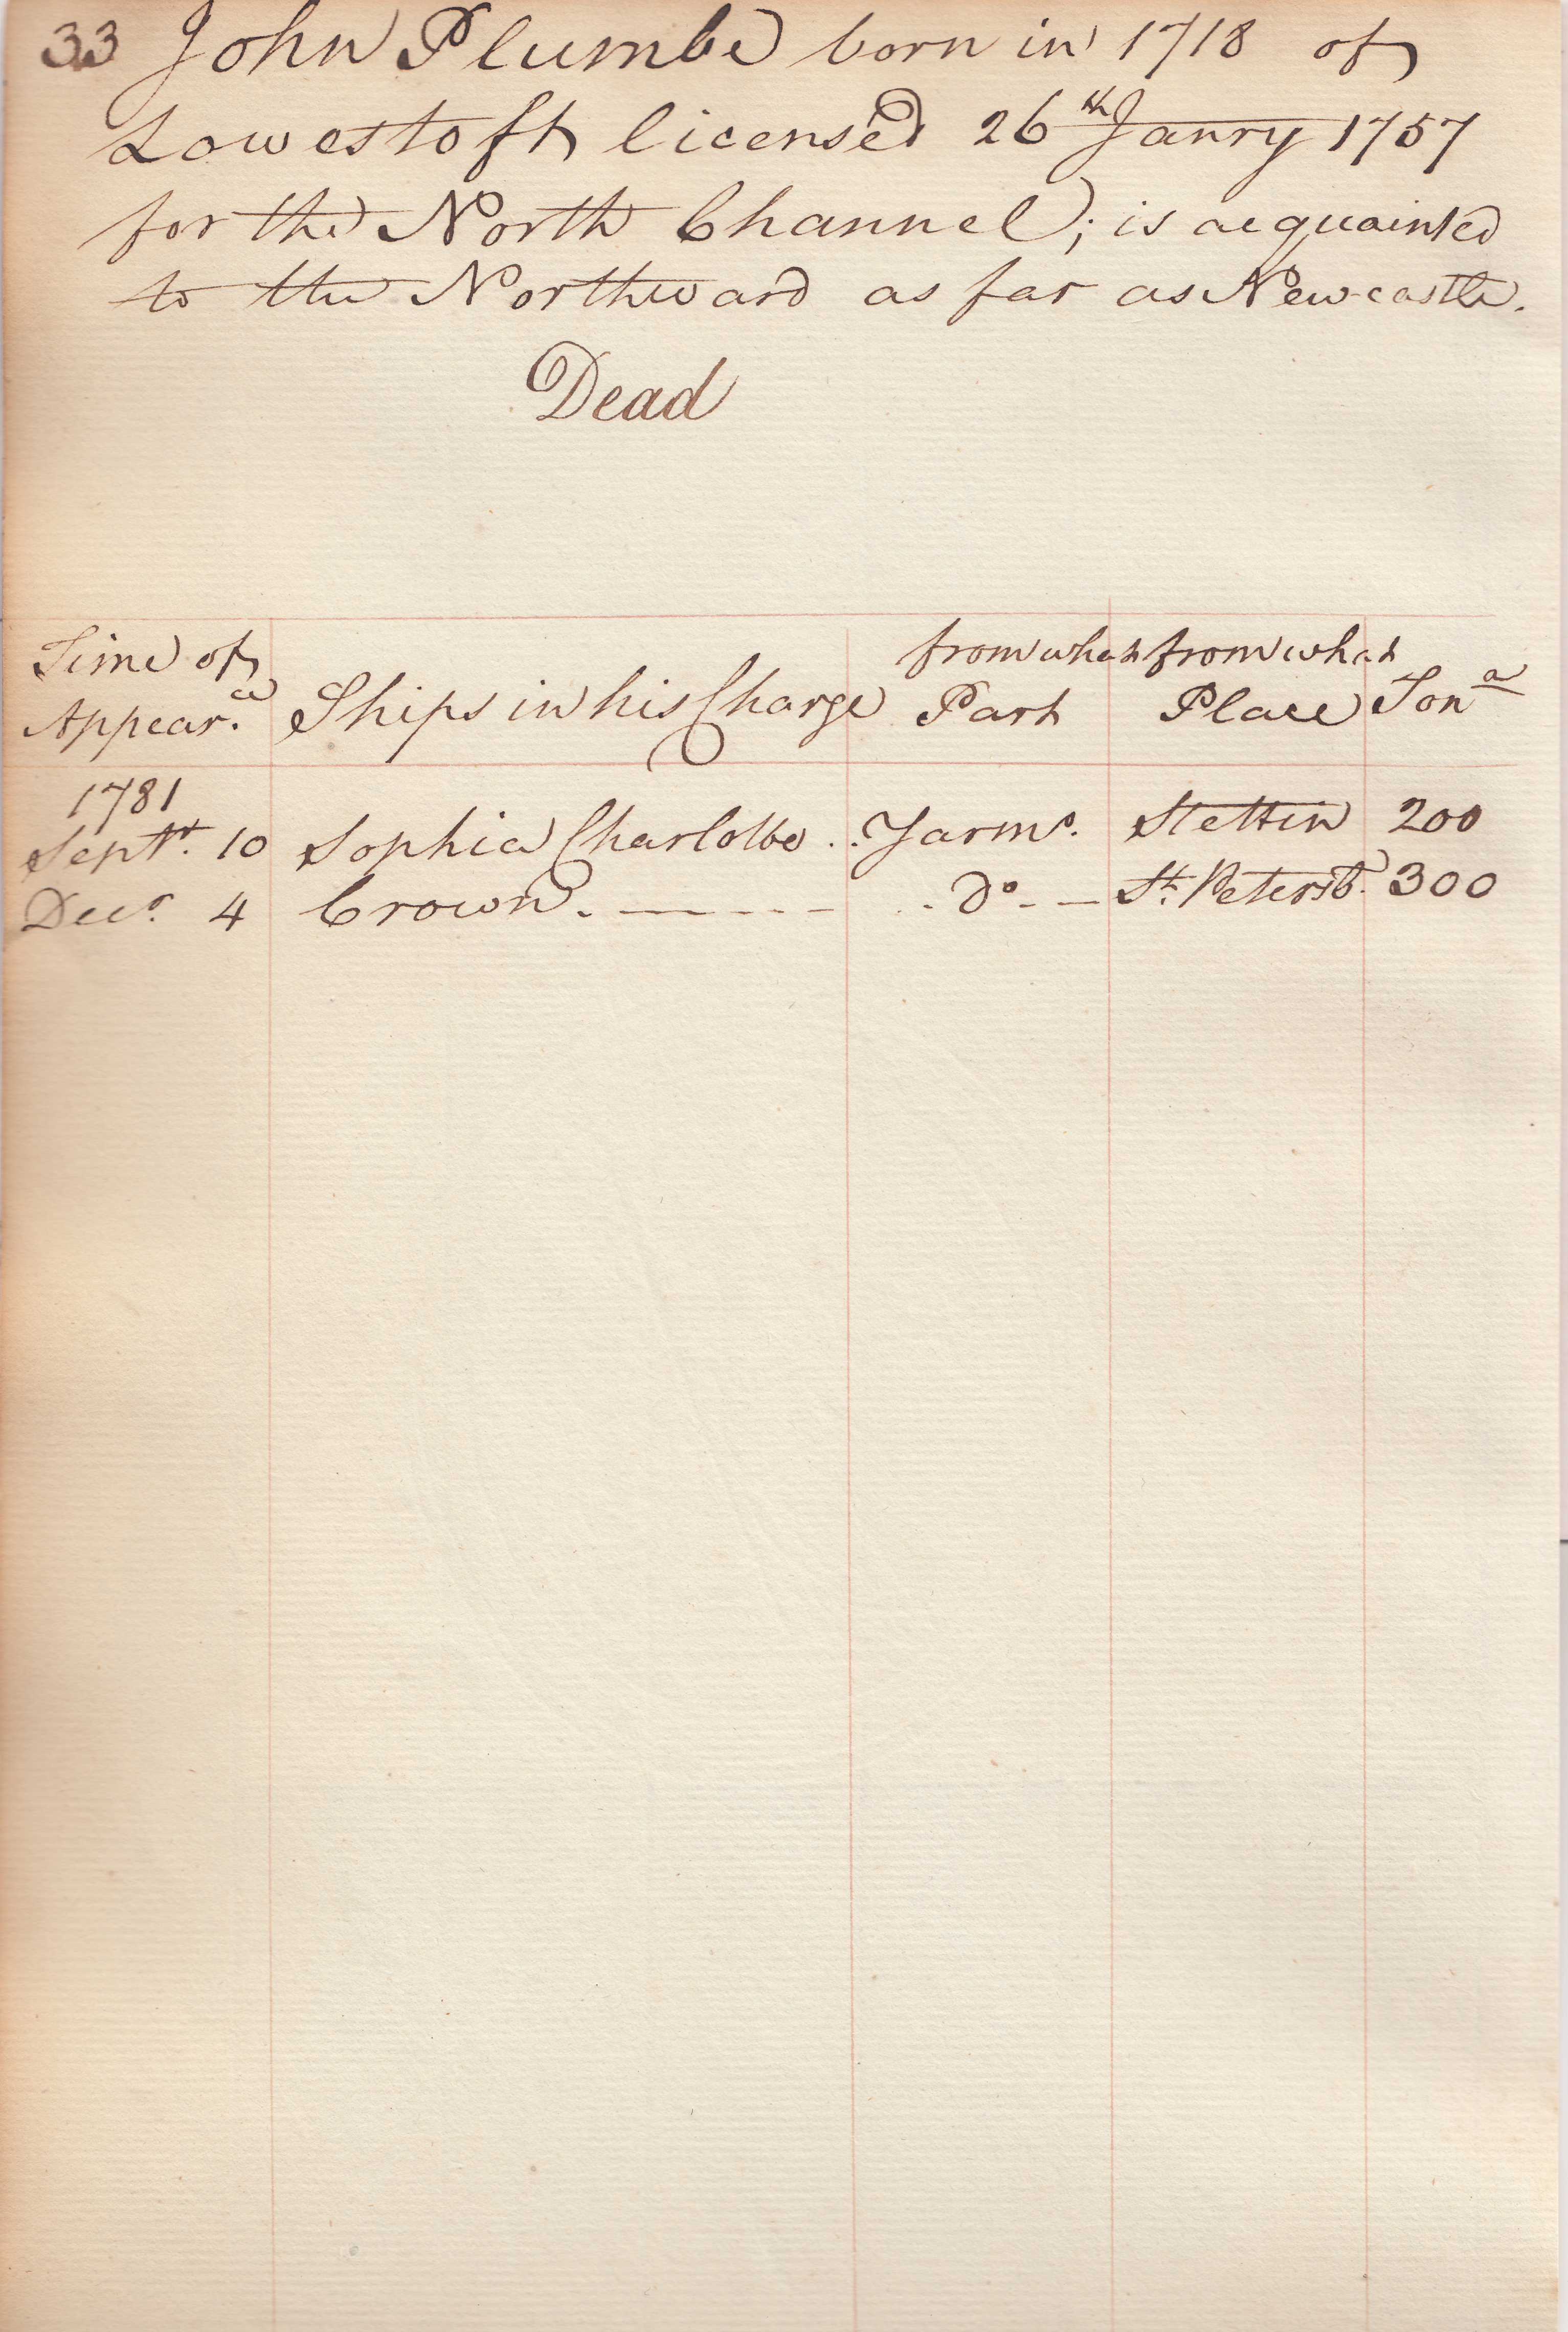 33 John Plumbe born in 1718 of
Lowestoft licensed 26th Janry 1757
for the North Channel; is acquainted
to the Northward as far as Newcastle.
Dead
Time of Appear.ce Ships in his Charge from what Part from what Place Tona
1781
Septr. 10 Sophia Charlotte . . Yarmo. Stettin 200
Decr. 4 Crown. — - - - . - Do. - — St. Petersb. 300